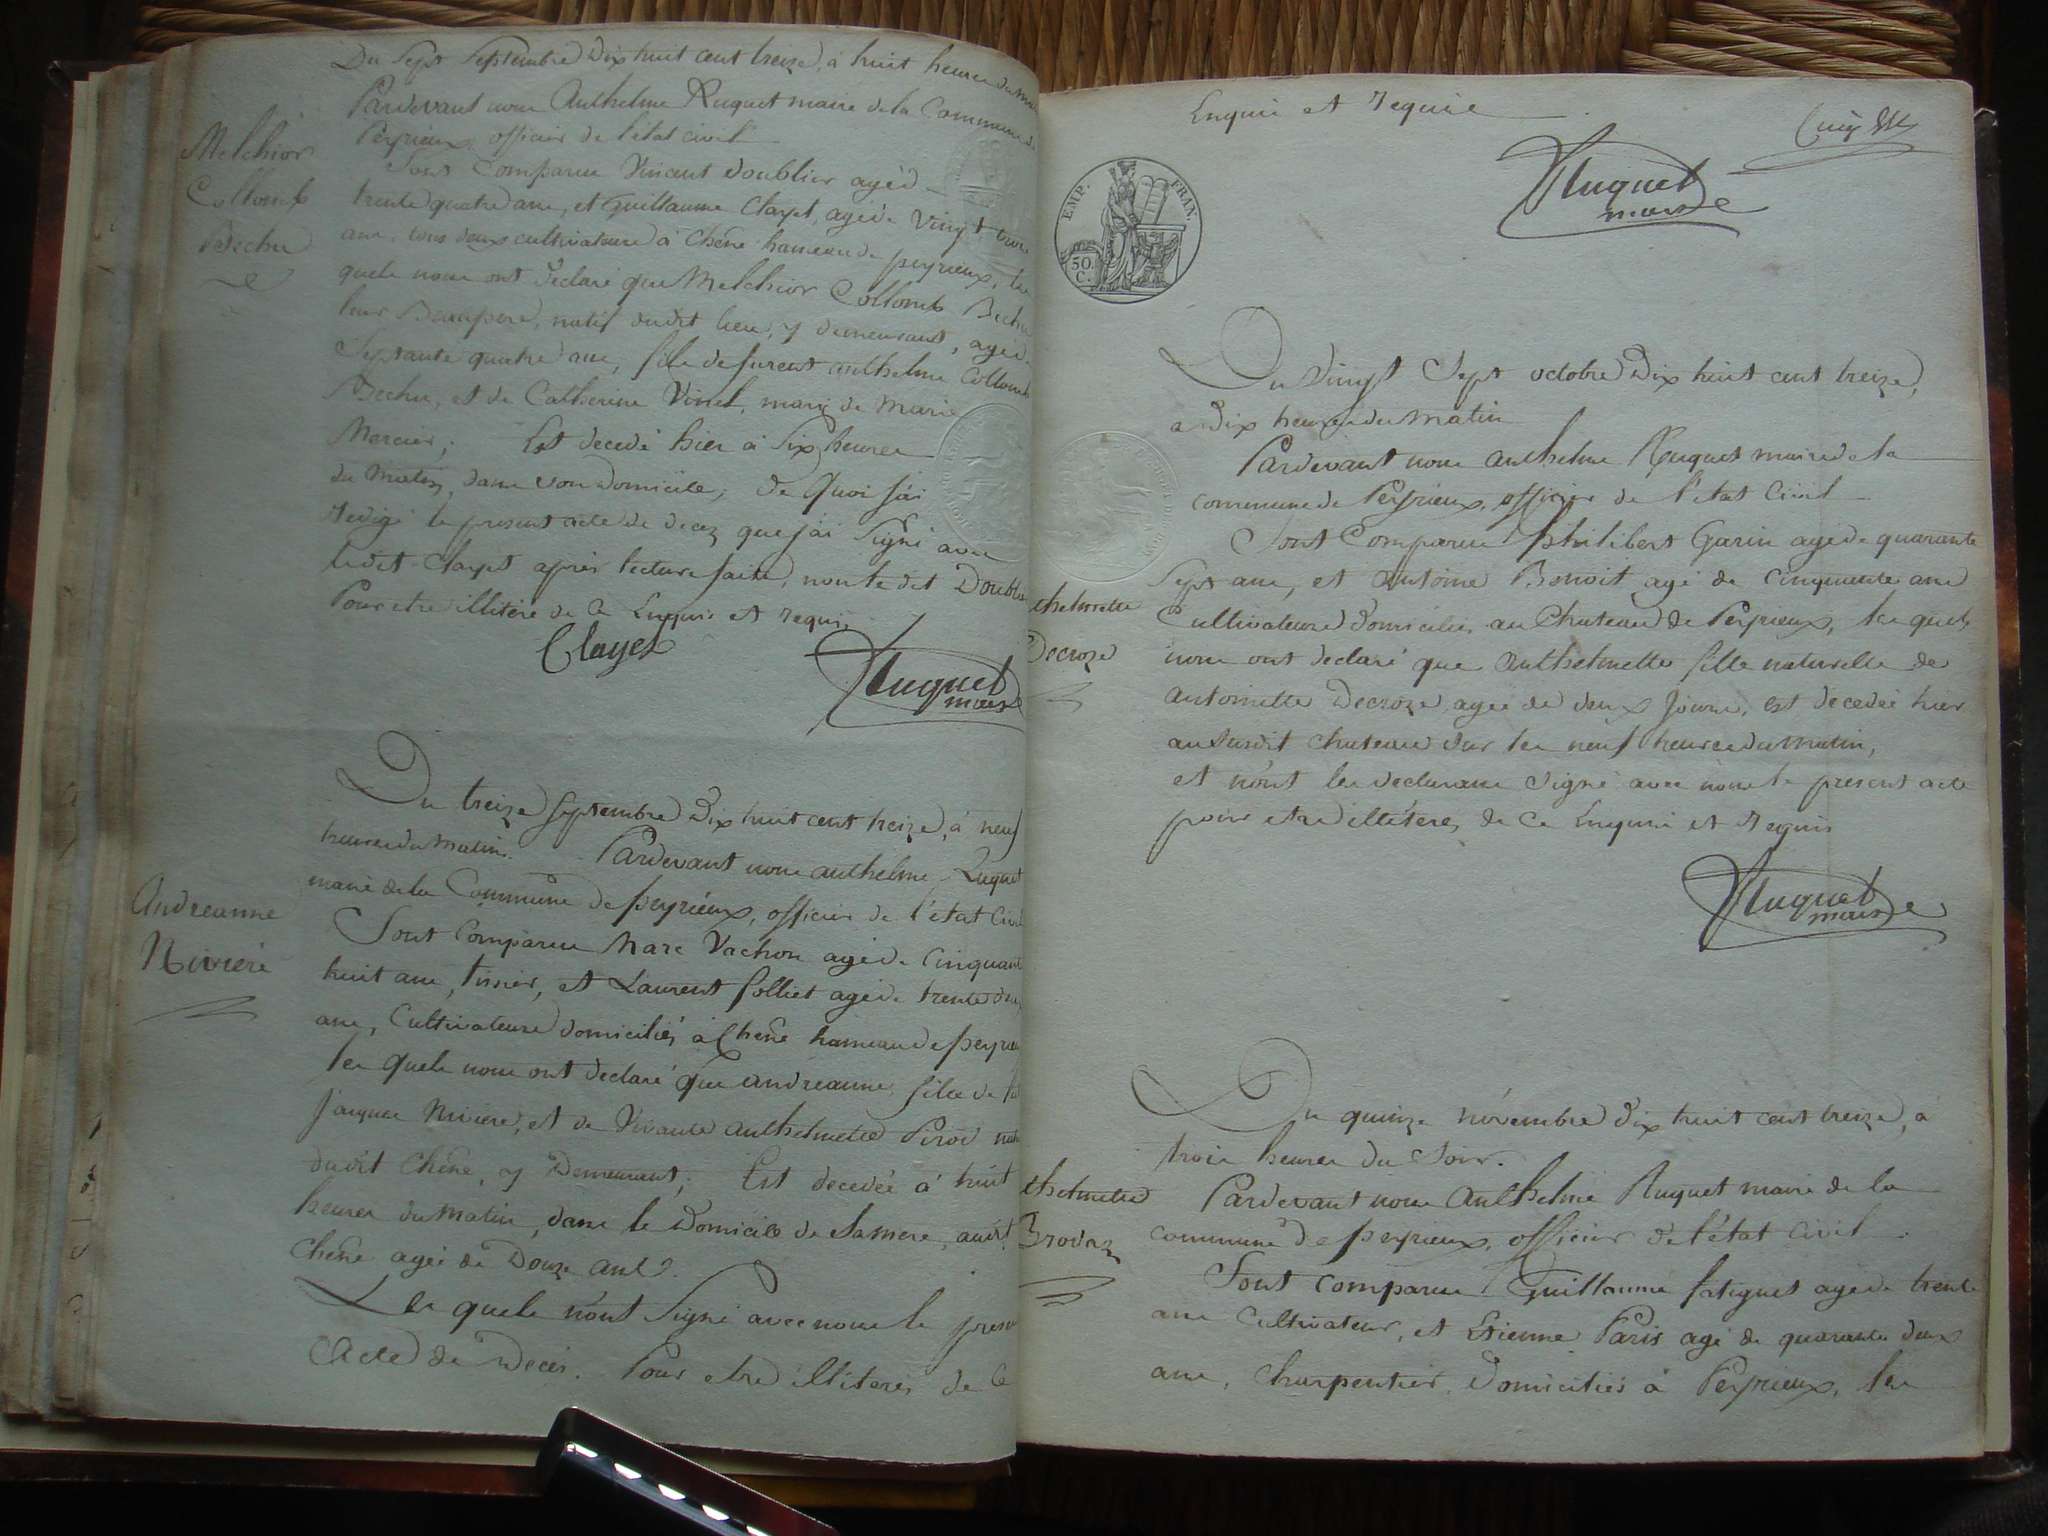 Du Sept Septembre Dix huit cent treize, à huit heures du
Pardevant nous Anthelme Ruguet maire de la Commune de
Peyrieux, officier de l'état civil
Melchior
Collomb
Bechu
Sont Comparus Vincent Doublier agé de
trente quatre ans, et Guillaume Clayet, agé de Vingt
ans, tous deux cultivateurs à Chêne hameau de peyrieux, les
quels nous ont declaré que Melchior Collomb Bechu
leur Beaupere, natif dudit lieu, y demeurant, agé de
Septante quatre ans, fils de furent anthelme Collomb
Bechu, et de Catherine Vinet, mary de Marie
Mercier; Est decedé hier à Six heures
du Matin, dans son Domicile; de Quoi j'ai
redigé le present acte de decez que j'ai Signé avec
ledit Clayet après lecture faite, non ledit Doublier
Pour etre illitéré de ce Enquis et requis
Clayet
Ruguet
maire
Du treize Septembre Dix huit cent treize, à neuf
heures du matin. Pardevant nous anthelme Ruguet
maire de la Commune de peyrieux, officier de l'état Civil
Andreanne
Riviere
Sont Comparus Marc Vachon agé de Cinquante
huit ans, tissier, et Laurent folliet agé de trente
ans, Cultivateurs domiciliés à Chêne hameau de peyrieux
les quels nous ont declaré que andreanne fille de
Jacques Riviere, et de Vivante anthelmette Pirod
dudit Chêne, y Demeurant; Est decedée à huit
heures du matin, dans le Domicile de Sa mere, audit
Chêne agée de Douze ans.
Les quels n'ont Signé avec nous le present
Acte de Decès. Pour etre illiterés de Ce
Enquis et requis
Ruguet
maire
EMP. FRAN.
50. C.
Du Vingt Sept octobre Dix huit cent treize,
a Dix heures du matin
Pardevant nous anthelme Ruguet maire de la
commune de Peyrieux, officier de l'état Civil
Sont Comparus Philibert Garin agé de quarante
Sept ans, et antoine Benoit agé de Cinquante ans
thelmette
Decroze
Cultivateurs Domiciliés au Chateau de Peyrieux, les quels
nous ont declaré que anthelmette fille naturelle de
antoinette Decroze, agée de deux jours, est decedée hier
au Susdit chateau Sur les neuf heures du matin,
et n'ont les declarans Signé avec nous le present acte
pour etre illitérés, de Ce Enquis et requis
Ruguet
maire
Du quinze novembre Dix huit cent treize, à
trois heures du Soir.
thelmette
Brovaz
Pardevant nous Anthelme Ruguet maire de la
commune de peyrieux, officier de l'état Civil
Sont comparus Guillaume fatiguet agé de trente
ans Cultivateur, et Etienne Paris agé de quarante deux
ans, Charpentier, Domiciliés à Peyrieux, les